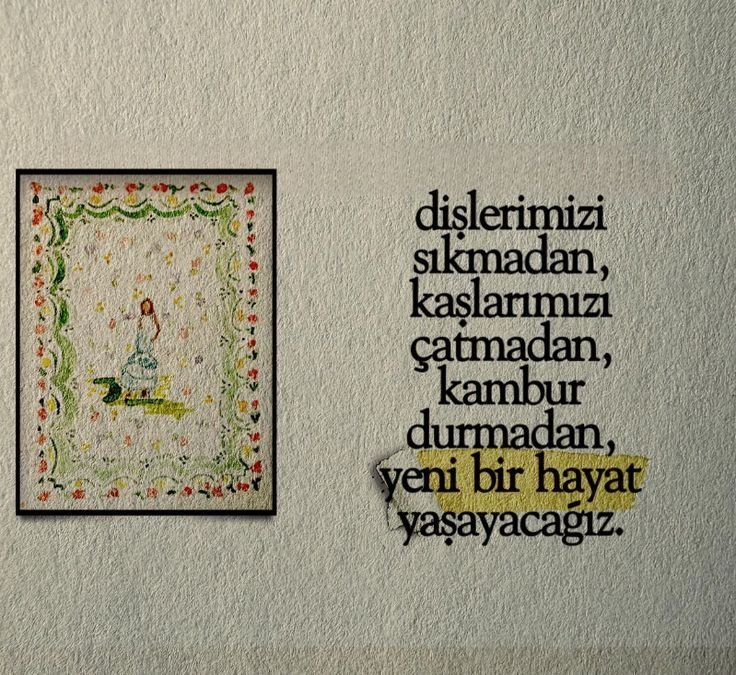 dişlerimizi
sıkmadan,
kaşlarımızı
çatmadan,
kambur
durmadan,
yeni bir hayat
yaşayacağız.